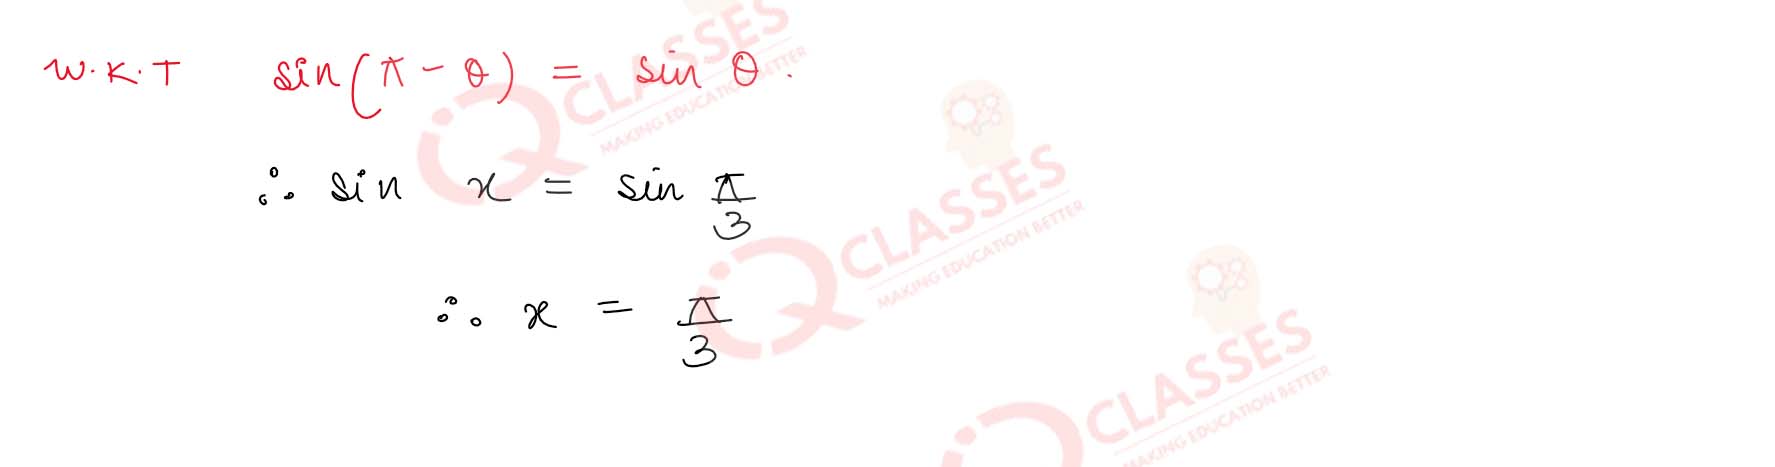 W.K.T sin(π - θ) = sin θ.
∴ sin x = sin π/3
∴ x = π/3
CLASSES
MAKING EDUCATION BETTER
CLASSES
MAKING EDUCATION BETTER
CLASSES
MAKING EDUCATION BETTER